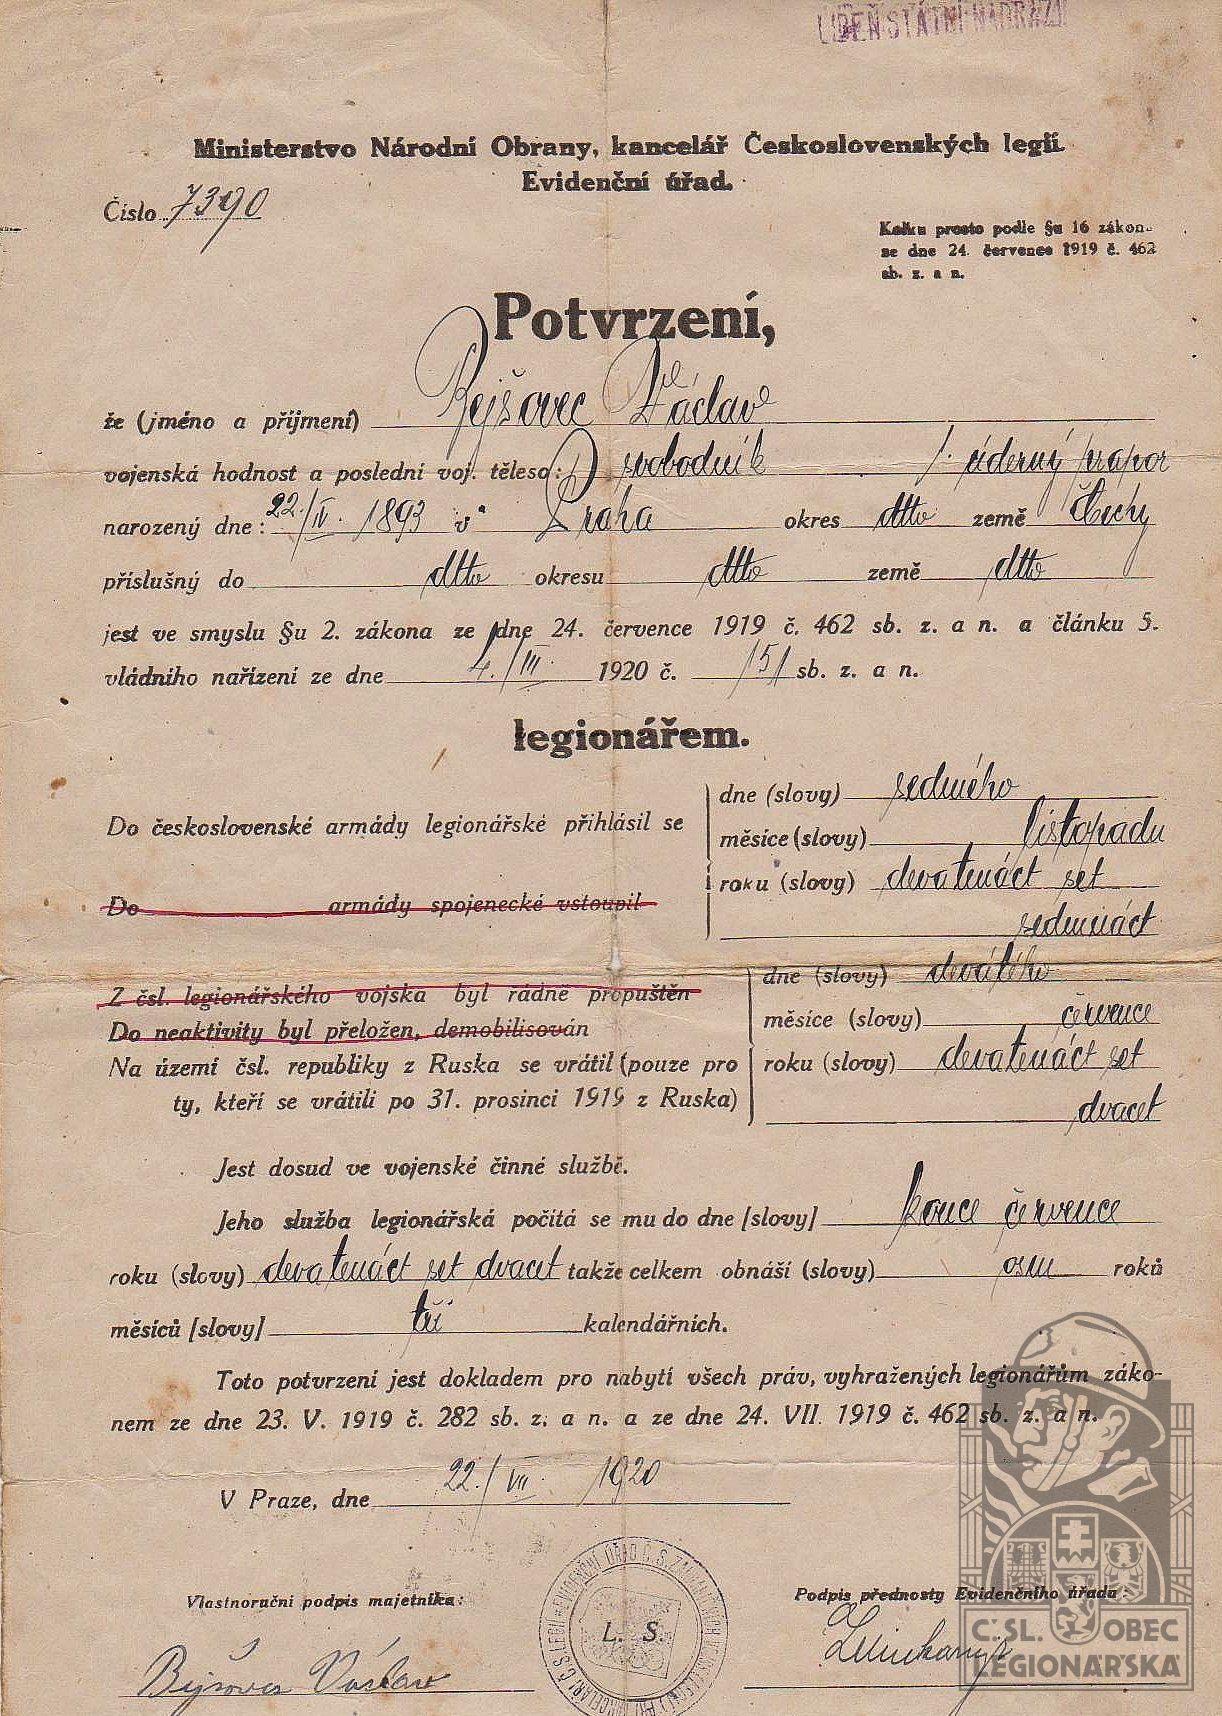 LIBEŇ STÁTNÍ NÁDRAŽÍ
Ministerstvo Národní Obrany, kancelář Československých legií.
Evidenční úřad.
Číslo 7390
Kolku prosto podle §u 16 zákona
ze dne 24. července 1919 č. 462
sb. z. a n.
Potvrzení,
že (jméno a příjmení) Rejšovec Václav
vojenská hodnost a poslední voj. těleso: svobodník 1. úderný prapor
narozený dne: 22./IV. 1893 v Praha okres dtto země Čechy
příslušný do dtto okresu dtto země dtto
jest ve smyslu §u 2. zákona ze dne 24. července 1919 č. 462 sb. z. a n. a článku 5.
vládního nařízení ze dne 4./III. 1920 č. 151 sb. z. a n.
legionářem.
Do československé armády legionářské přihlásil se
Do armády spojenecké vstoupil
dne (slovy) sedmého
měsíce (slovy) listopadu
roku (slovy) devatenáct set
sedmnáct
Z čsl. legionářského vojska byl řádně propuštěn
Do neaktivity byl přeložen, demobilisován
Na území čsl. republiky z Ruska se vrátil (pouze pro
ty, kteří se vrátili po 31. prosinci 1919 z Ruska)
dne (slovy) devátého
měsíce (slovy) července
roku (slovy) devatenáct set
dvacet
Jest dosud ve vojenské činné službě.
Jeho služba legionářská počítá se mu do dne [slovy] konce července
roku (slovy) devatenáct set dvacet takže celkem obnáší (slovy) osm roků
měsíců [slovy] tři kalendářních.
Toto potvrzení jest dokladem pro nabytí všech práv, vyhražených legionářům záko-
nem ze dne 23. V. 1919 č. 282 sb. z. a n. a ze dne 24. VII. 1919 č. 462 sb. z. a n.
V Praze, dne 22./VII. 1920
Vlastnoruční podpis majetníka:
Podpis přednosty Evidenčního úřadu:
L. S.
Václav
Č.SL. OBEC
LEGIONÁŘSKÁ